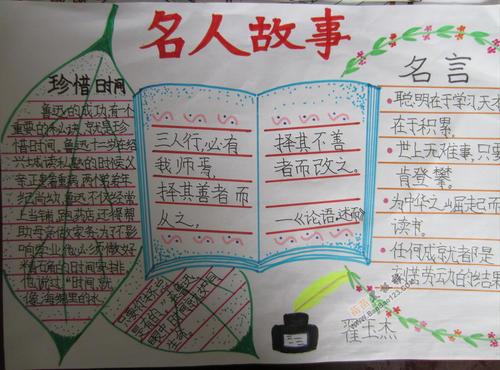 名人故事
珍惜时间
鲁迅的成功,有个
重要的秘诀,就是珍
惜时间。鲁迅十二岁在
兴城读私塾的时候父
亲正患着重病,两个弟弟年
纪尚幼,鲁迅不仅经常
上当铺,跑药店,还得帮
助母亲做家务,为不影
响学业,他必须做好
精确的时间安排。
他说过"时间,就
像海绵里的水
三人行,必有
我师焉,
择其善者而
从之,
择其不善
者而改之。
—《论语·述而》
名言
聪明在于学习,天才
在于积累。
世上无难事,只要
肯登攀。
为中华之崛起而
读书。
任何成就都是
刻苦劳动的结果
翟玉杰